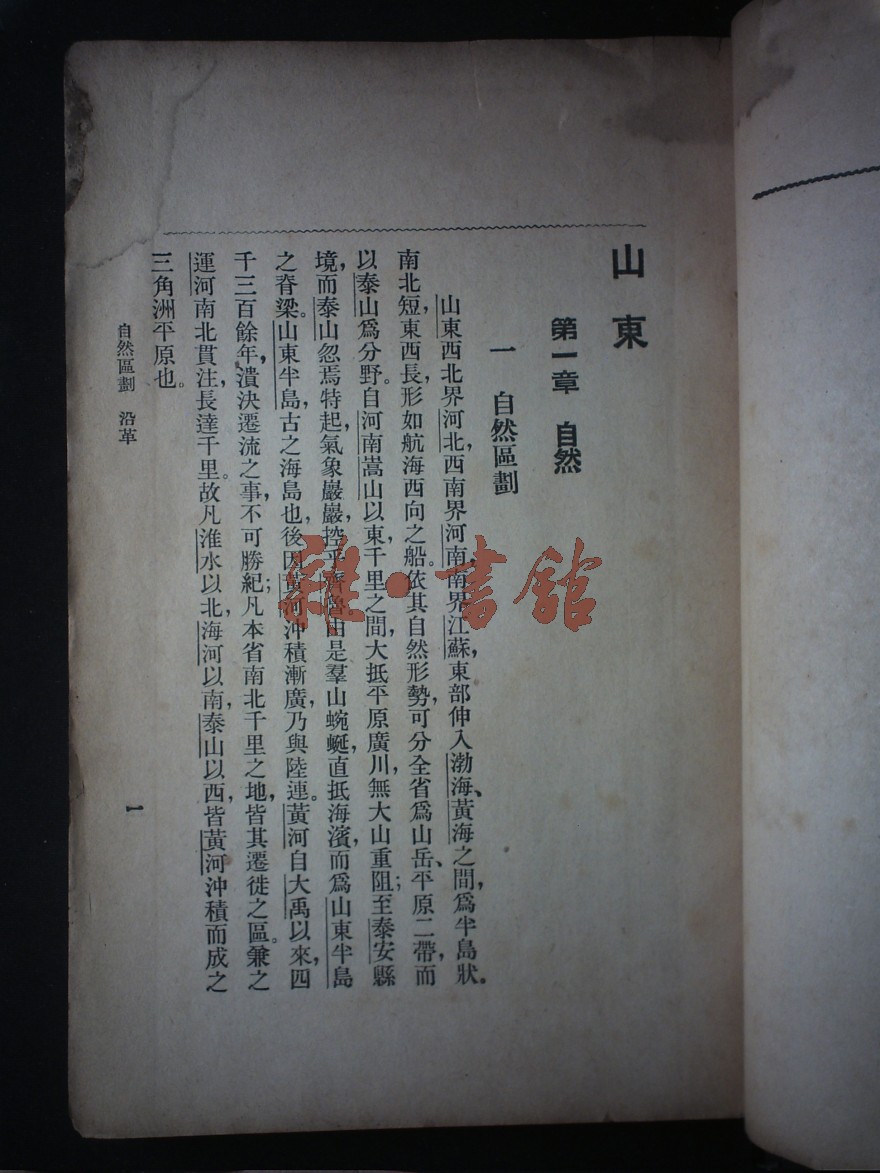 山東
第一章 自然
一 自然區劃
山東西北界河北,西南界河南,南界江蘇,東部伸入渤海、黃海之間,爲半島狀。
南北短,東西長,形如航海西向之船。依其自然形勢,可分全省爲山岳、平原二帶,而
以泰山爲分野。自河南嵩山以東,千里之間,大抵平原廣川,無大山重阻;至泰安縣
境,而泰山忽焉特起,氣象巖巖,控乎齊魯由是羣山蜿蜒,直抵海濱,而爲山東半島
之脊梁。山東半島,古之海島也,後因黃河沖積漸廣,乃與陸連。黃河自大禹以來,四
千三百餘年,潰決遷流之事,不可勝紀;凡本省南北千里之地,皆其遷徙之區。兼之
運河南北貫注,長達千里。故凡淮水以北,海河以南,泰山以西,皆黃河沖積而成之
三角洲平原也。
自然區劃 沿革
一
雜·書館